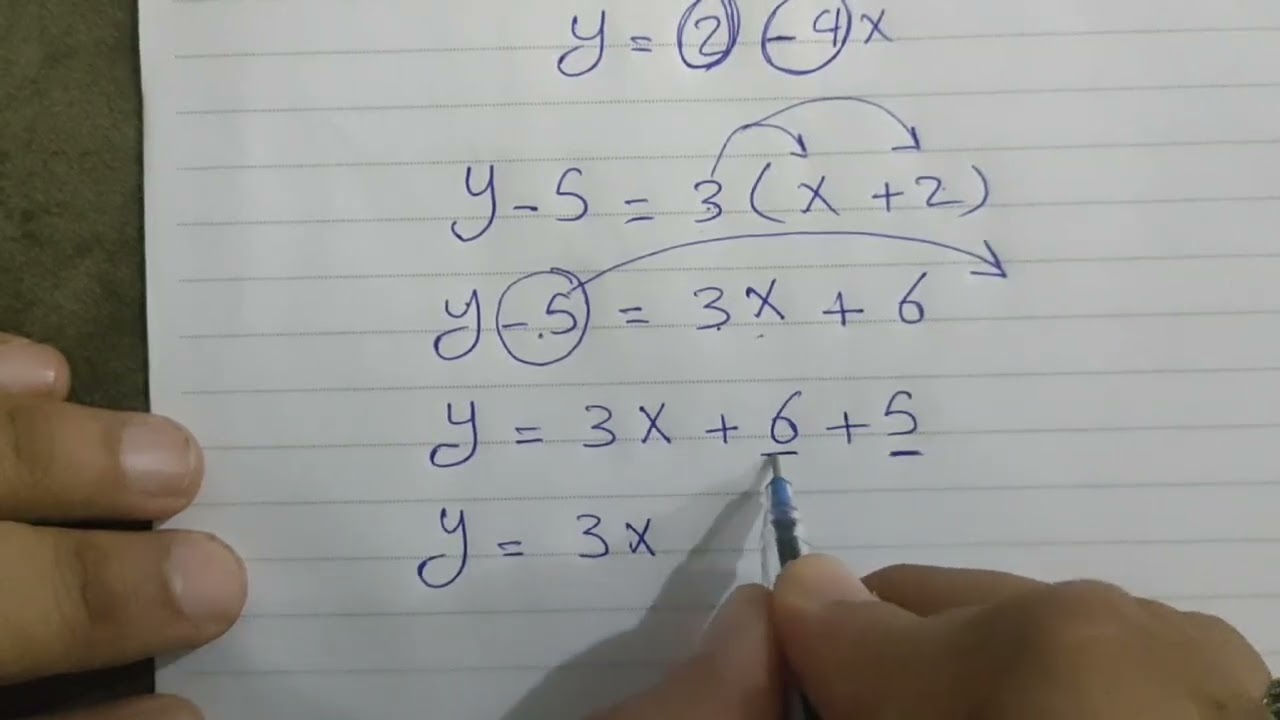 y = 2 -4x
y - 5 = 3(x + 2)
y - 5 = 3x + 6
y = 3x + 6 + 5
y = 3x